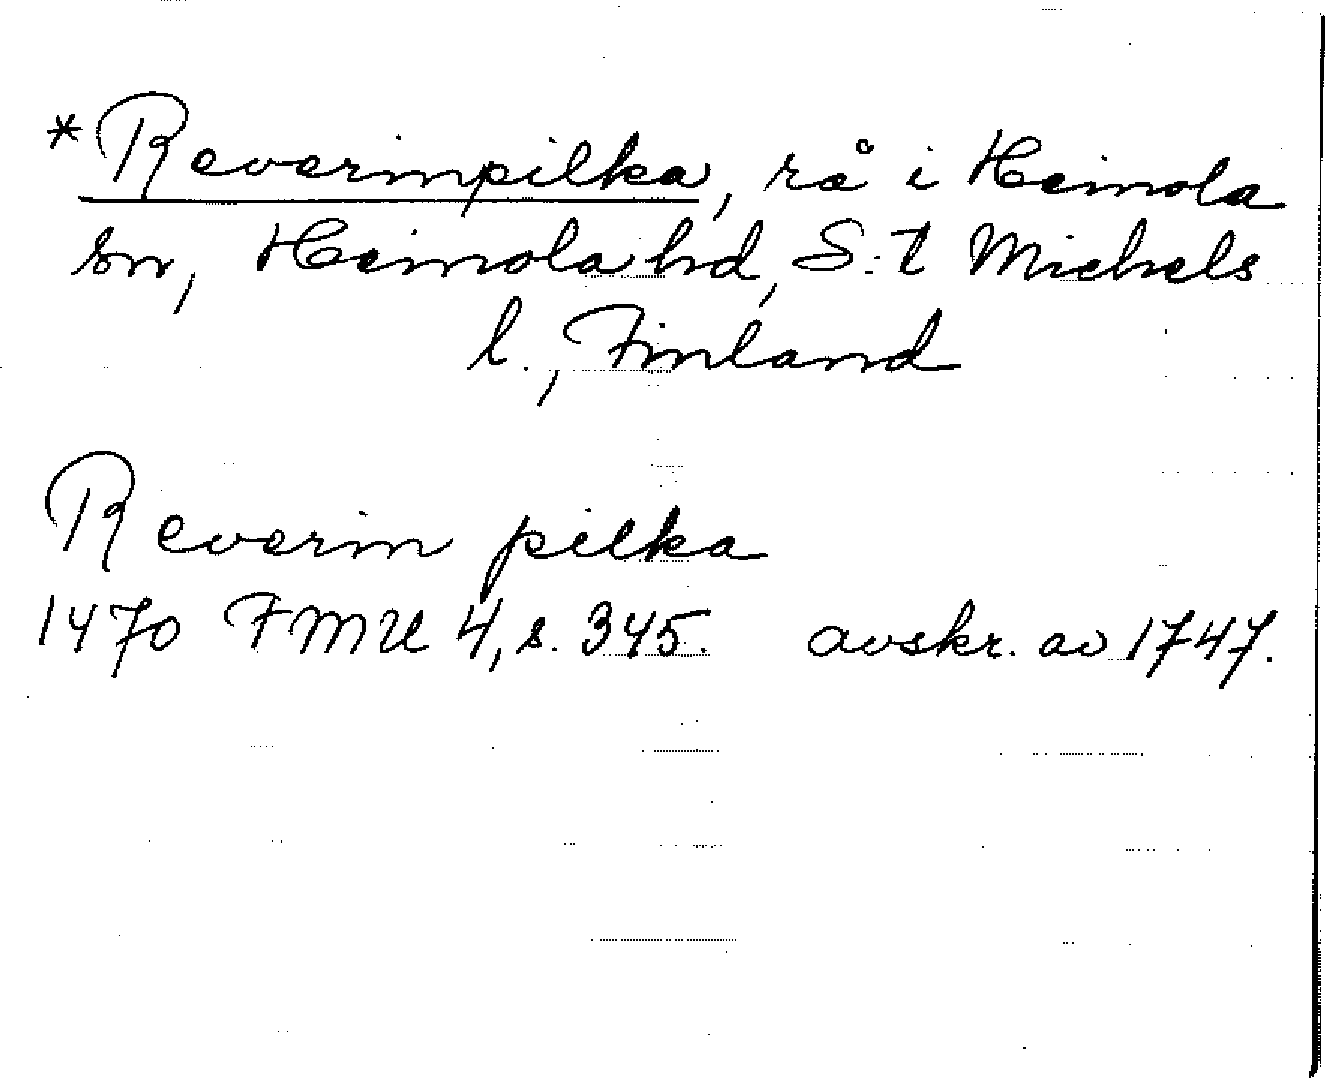 *Reverinpilka, rå i Heinola
sn, Heinola hd, S:t Michels
l., Finland
Reverin pilka
1470 FMU 4, s. 345. avskr. av 1747.